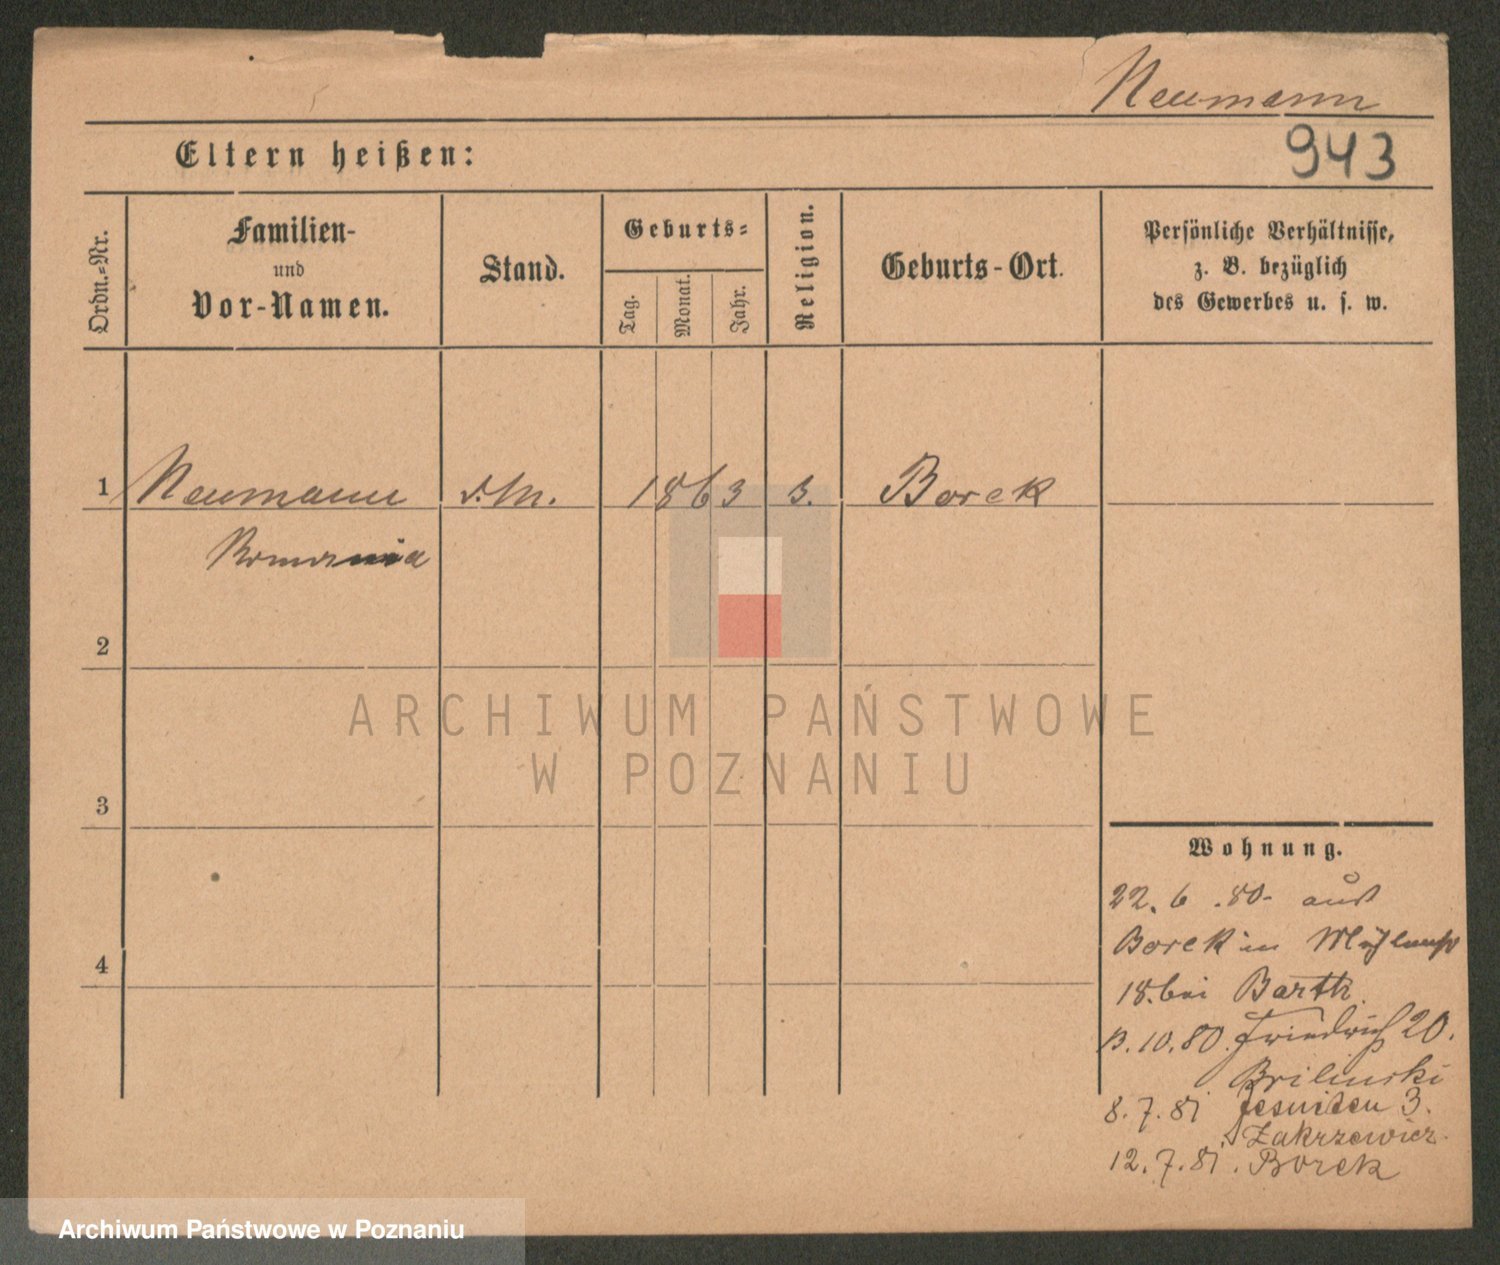 Neumann
943
Eltern heißen:
Ordn.=Nr.
Familien-
und
Vor-Namen.
Stand.
Geburts=
Tag.
Monat.
Jahr.
Religion.
Geburts-Ort.
Persönliche Verhältnisse,
z. B. bezüglich
des Gewerbes u. s. w.
1 Neumann d.M. 1863 Borek
2
3
4
ARCHIWUM PAŃSTWOWE
W POZNANIU
Wohnung.
22. 6. 80. aus
Borek in
18. bei Barth.
10. 80. Friedrich 20.
Brilinski
8. 7. 81 Jesuiten 3.
Zakrzewicz
12. 7. 81. Borek
Archiwum Państwowe w Poznaniu